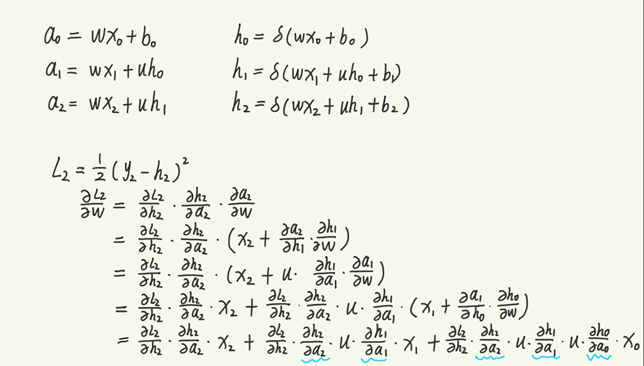 a₀ = wx₀ + b₀    h₀ = δ(wx₀ + b₀)
a₁ = wx₁ + uh₀    h₁ = δ(wx₁ + uh₀ + b₁)
a₂ = wx₂ + uh₁    h₂ = δ(wx₂ + uh₁ + b₂)
L₂ = 1/2 (y₂ − h₂)²
∂L₂/∂w = ∂L₂/∂h₂ · ∂h₂/∂a₂ · ∂a₂/∂w
= ∂L₂/∂h₂ · ∂h₂/∂a₂ · (x₂ + ∂a₂/∂h₁ · ∂h₁/∂w)
= ∂L₂/∂h₂ · ∂h₂/∂a₂ · (x₂ + u · ∂h₁/∂a₁ · ∂a₁/∂w)
= ∂L₂/∂h₂ · ∂h₂/∂a₂ · x₂ + ∂L₂/∂h₂ · ∂h₂/∂a₂ · u · ∂h₁/∂a₁ · (x₁ + ∂a₁/∂h₀ · ∂h₀/∂w)
= ∂L₂/∂h₂ · ∂h₂/∂a₂ · x₂ + ∂L₂/∂h₂ · ∂h₂/∂a₂ · u · ∂h₁/∂a₁ · x₁ + ∂L₂/∂h₂ · ∂h₂/∂a₂ · u · ∂h₁/∂a₁ · u · ∂h₀/∂a₀ · x₀